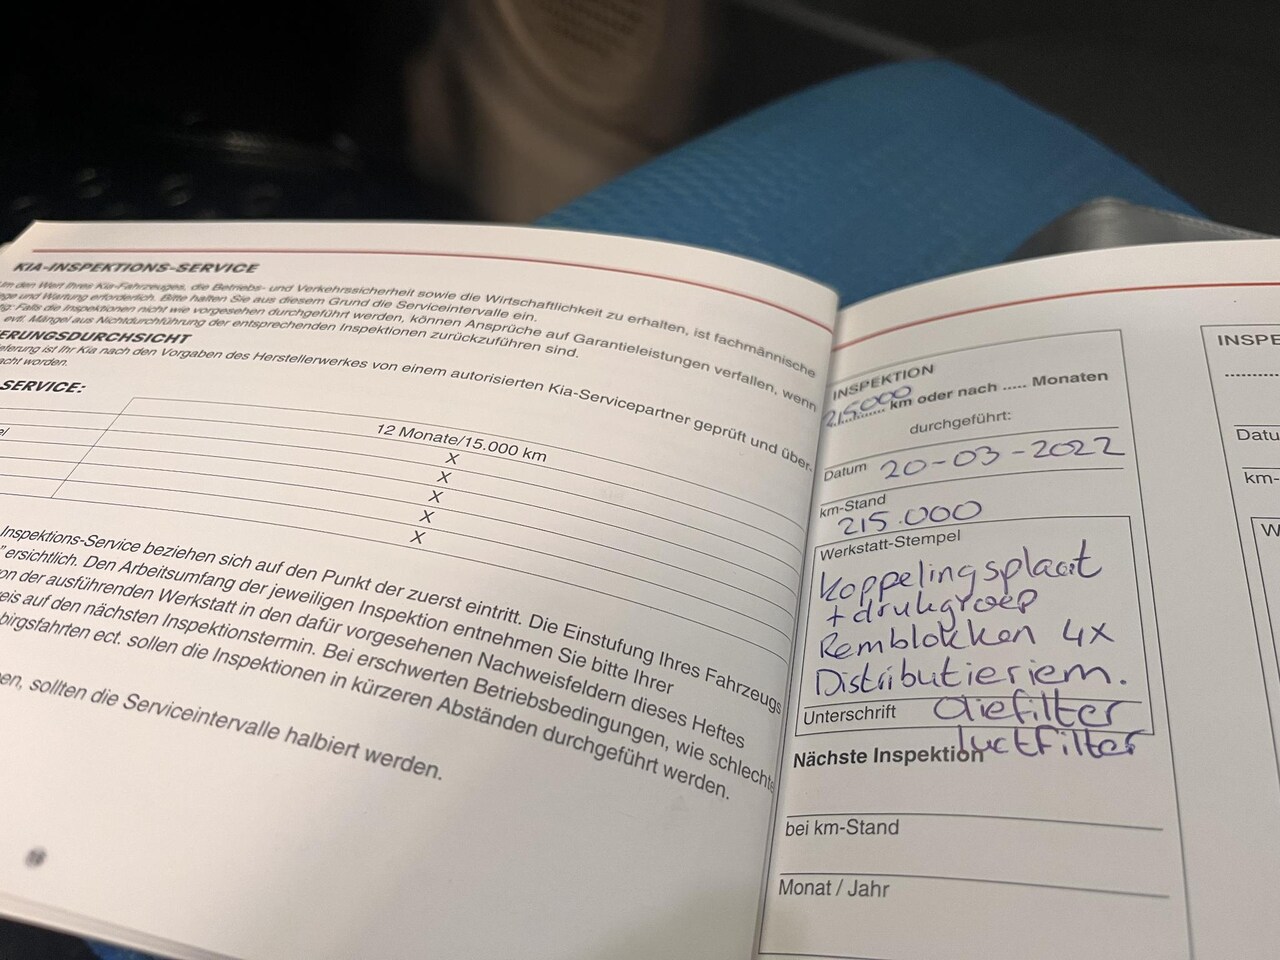 KIA-INSPEKTIONS-SERVICE
Um den Wert Ihres Kia-Fahrzeuges, die Betriebs- und Verkehrssicherheit sowie die Wirtschaftlichkeit zu erhalten, ist fachmännische
und Wartung erforderlich. Bitte halten Sie aus diesem Grund die Serviceintervalle ein.
Falls die Inspektionen nicht wie vorgesehen durchgeführt werden, können Ansprüche auf Garantieleistungen verfallen, wenn
evtl. Mängel aus Nichtdurchführung der entsprechenden Inspektionen zurückzuführen sind.
ERUNGSDURCHSICHT
ieferung ist Ihr Kia nach den Vorgaben des Herstellerwerkes von einem autorisierten Kia-Servicepartner geprüft und über-
acht worden.
SERVICE:
12 Monate/15.000 km
X
X
X
X
X
Inspektions-Service beziehen sich auf den Punkt der zuerst eintritt. Die Einstufung Ihres Fahrzeugs
" ersichtlich. Den Arbeitsumfang der jeweiligen Inspektion entnehmen Sie bitte Ihrer
on der ausführenden Werkstatt in den dafür vorgesehenen Nachweisfeldern dieses Heftes
eis auf den nächsten Inspektionstermin. Bei erschwerten Betriebsbedingungen, wie schlechte
birgsfahrten ect. sollen die Inspektionen in kürzeren Abständen durchgeführt werden.
en, sollten die Serviceintervalle halbiert werden.
INSPEKTION
215000 km oder nach ..... Monaten
durchgeführt:
Datum 20-03-2022
km-Stand
215.000
Werkstatt-Stempel
Koppelingsplaat
+ drukgroep
Remblokken 4x
Distributieriem.
Unterschrift oliefilter
luctfilter
Nächste Inspektion
bei km-Stand
Monat / Jahr
INSPE
Datu
km-
W